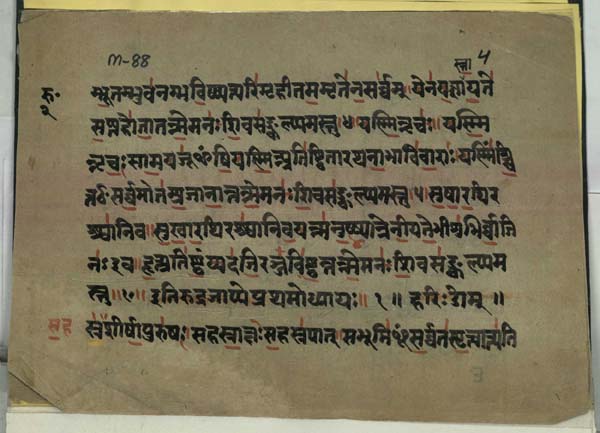 M-88
स्ना 4
रु॰
२
म्भूतम्भुवनम्भविष्यत्परिगृहीतममृतेनसर्व्वम् येनयज्ञस्तायते
सप्तहोतातन्मेमनःशिवसङ्कल्पमस्तु ४ यस्मिन्नृचः यस्मि
न्नृचःसामयजूᳬंषियस्मिन्प्रतिष्ठितारथनाभाविवाराः यस्मिँश्चि
त्तᳬंसर्व्वमोतम्प्रजानान्तन्मेमनःशिवसङ्कल्पमस्तु ५ सुषारथिर
श्वानिव सुखारथिरश्वानिवयन्मनुष्यान्नेनीयतेभीशुभिर्वाजि
नःइव हृत्प्रतिष्ठंय्यदजिरञ्जविष्ठन्तन्मेमनःशिवसङ्कल्पम
स्तु ॥६॥ इतिरुद्रजाप्येप्रथमोध्यायः ॥ १ ॥ हरिःॐम् ॥
सह स्रशीर्षापुरुषः सहस्राक्षःसहस्रपात् सभूमिᳬंसर्व्वतस्पृत्वात्यति